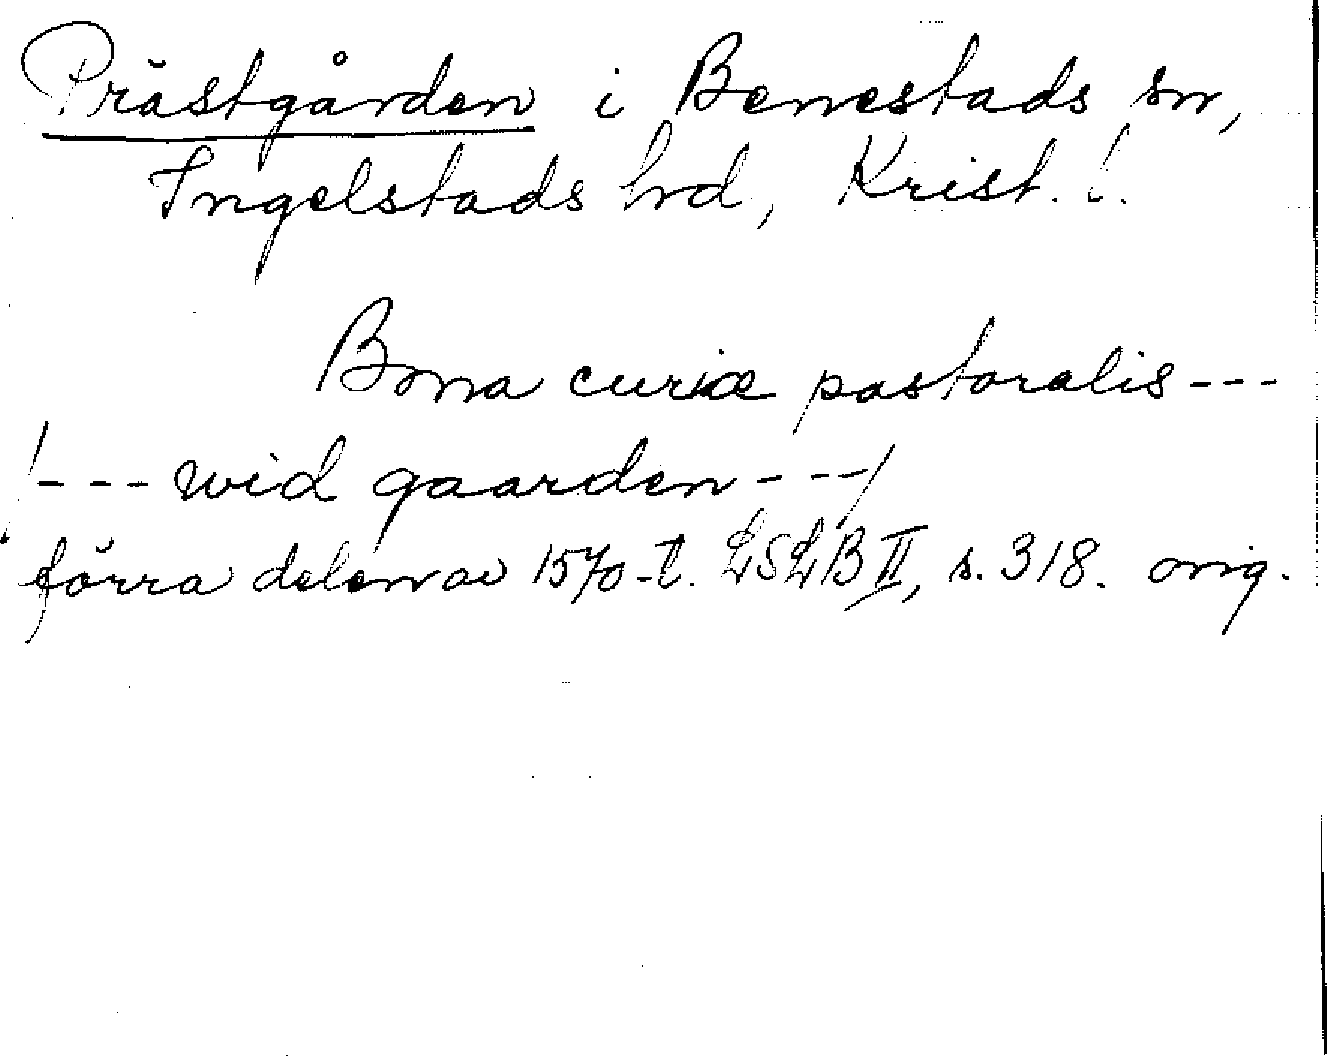 Prästgården i Benestads sn,
Ingelstads hrd, Krist. l.
Bona curiæ pastoralis ---
/--- wid gaarden ---/
förra delen av 1570-t. LSLB II, s. 318. orig.